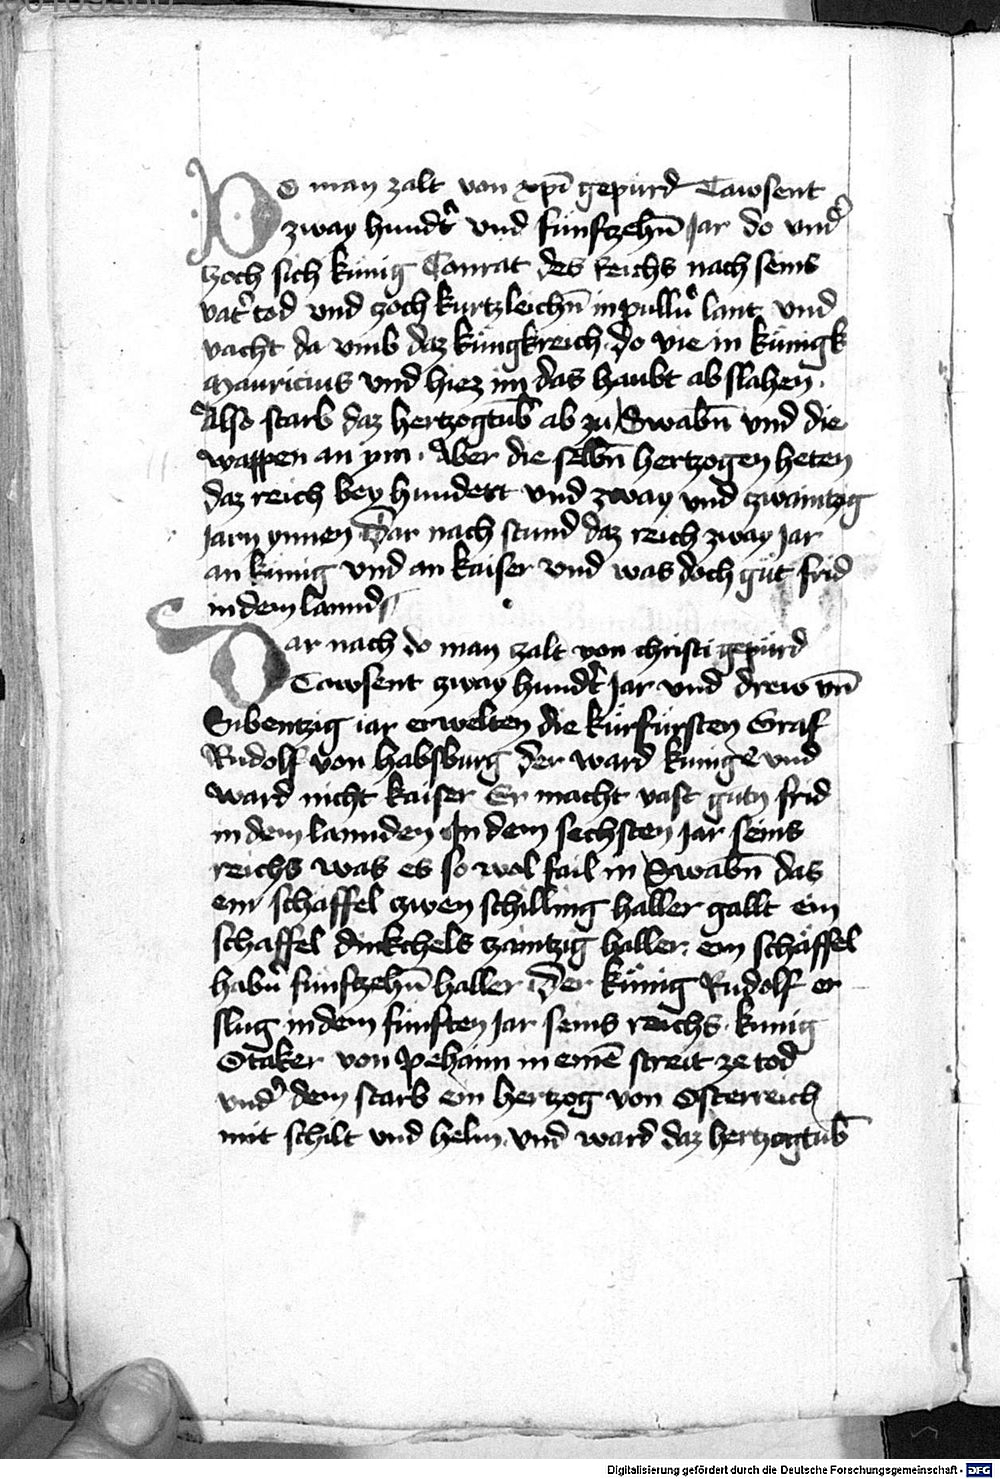 Do man zalt von xpi gepurd Tawsent
zway hundt und fünftzehn Jar do und
zoch sich künig Conrat des reichs nach seins
vatr tod und zoch kurtzleichn in pullu lant und
vacht da vmb daz küngkreich do vie in künigk
Mauricius vnd hiez im das haubt ab slahen.
Also starb daz hertzogtub ab zu Swabn vnd die
wappen an ym. Aber die selbn hertzogen heten
daz reich bey hundert vnd zway vnd zwaintzig
Jarn ynnen Dar nach stund daz reich zway Jar
an künig vnd an kaiser vnd was doch güt frid
in dem lannd
Dar nach do man zalt von christi gepürd
Tawsent zway hundt Jar vnd drew vn
Sibentzig iar erwelten die kürfürsten Graf
Rudolf von habsburg der ward kunig vnd
ward nicht kaiser Er macht vast gutn frid
in dem lannden In dem sechsten Jar seins
reichs was es so wol fail in Swabn das
ein schaffel zwen schilling haller gallt ein
schaffel dinkchels zaintzig haller. ein schäffel
habn fünftzehn haller Der künig Rudolf er
slug in dem fünften Jar seins reichs. kunig
Otaker von Pehaim in eine streit ze tod
vnd dem starb ein hertzog von Osterreich
mit schilt vnd helm vnd ward daz hertzogtub
Digitalisierung gefördert durch die Deutsche Forschungsgemeinschaft - DFG